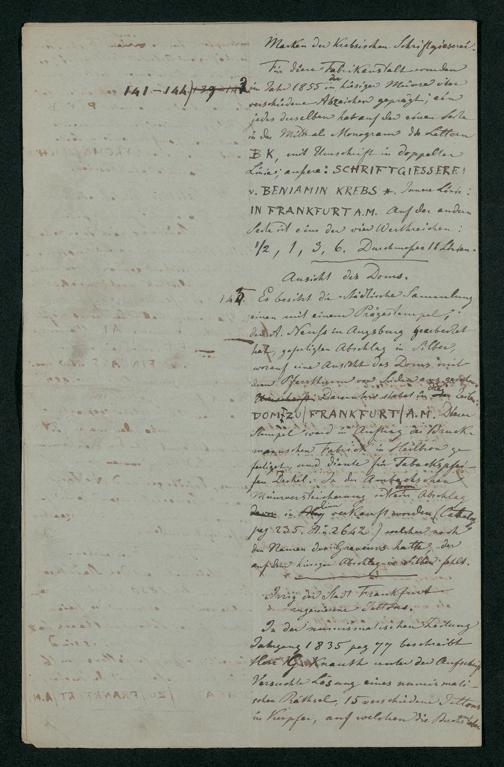 Marken der Krebsischen Schriftgieserei.
Für diese Fabrikanstalt wurden
141–144 139 142 im Jahr 1855 in hiesiger Münze vier
verschiedene Abzeichen geprägt; ein
jedes derselben hat auf der einen Seite
in der Mitte als Monogram die Lettern
BK, mit Umschrift in doppelter
Linie; äusere: SCHRIFTGIESSEREI
v. BENIAMIN KREBS *. Innere Linie:
IN FRANKFURT A.M. Auf der andern
Seite ist eine der vier Werthzeichen:
1/2, 1, 3, 6. Durchmesser 11 Linien.
Ansicht des Doms.
145. Es besitzt die Städtische Sammlung
einen mit einem Prägestempel,
den A. Neuss in Augsburg gearbeitet
hat, gefertigten Abschlag in Silber,
worauf eine Ansicht des Doms mit
dem Pfarrthurm von Süden
Darunter stehet in
DOM ZU / FRANKFURT / A.M. Dieser
Stempel ward im Auftrag der Bruck-
mannischen Fabrick in Heilbron ge-
fertiget, und diente für Tabackspfei-
fen Deckel. In der
Münzversteigerung ist ein Abschlag
in verkauft worden (Catalog
pag 235. No 2642) welcher noch
den Namen des Graveurs hatte, der
auf dem hiesigen Abschlag in Silber fehlt.
Irrig der Stadt Frankfurt
zugewiesene Jettons.
In der numismatischen Zeitung
Jahrgang 1835 pag 77 beschreibt
Herr Knauth unter der Aufschrift
Versuchte Lösung eines numismati-
schen Räthsel, 15 verschiedene Jettons
in Kupfer, auf welchen die Buchstaben